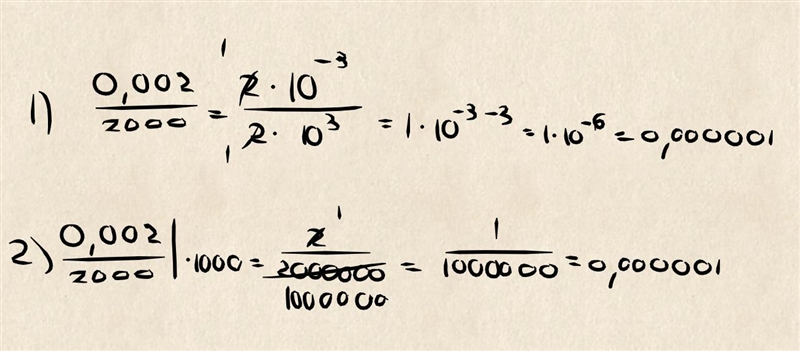 1) 0,002/2000 = 2·10^-3/2·10^3 = 1·10^-3-3 = 1·10^-6 = 0,000001
2) 0,002/2000 |·1000 = 2/2000000 1 1000000 = 1/1000000 = 0,000001